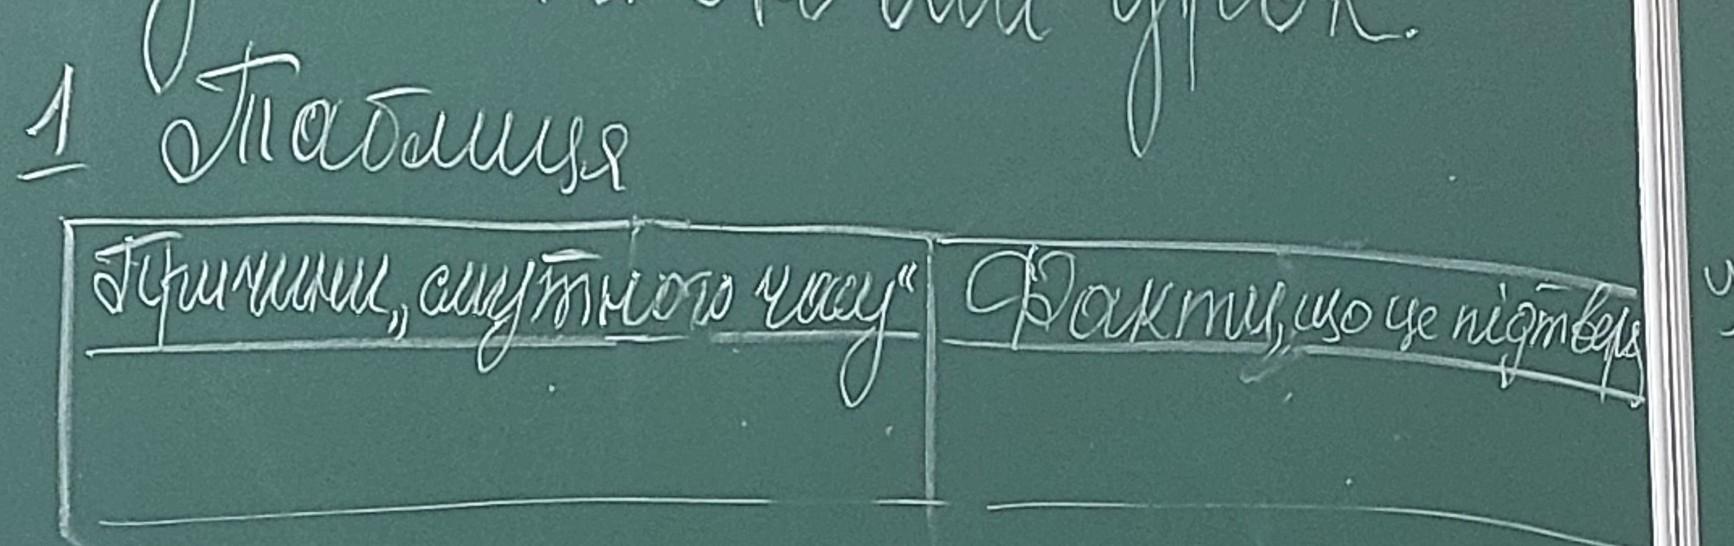 урок.
1 Таблиця
Причини „смутного часу“ Факти, що це підтвердж